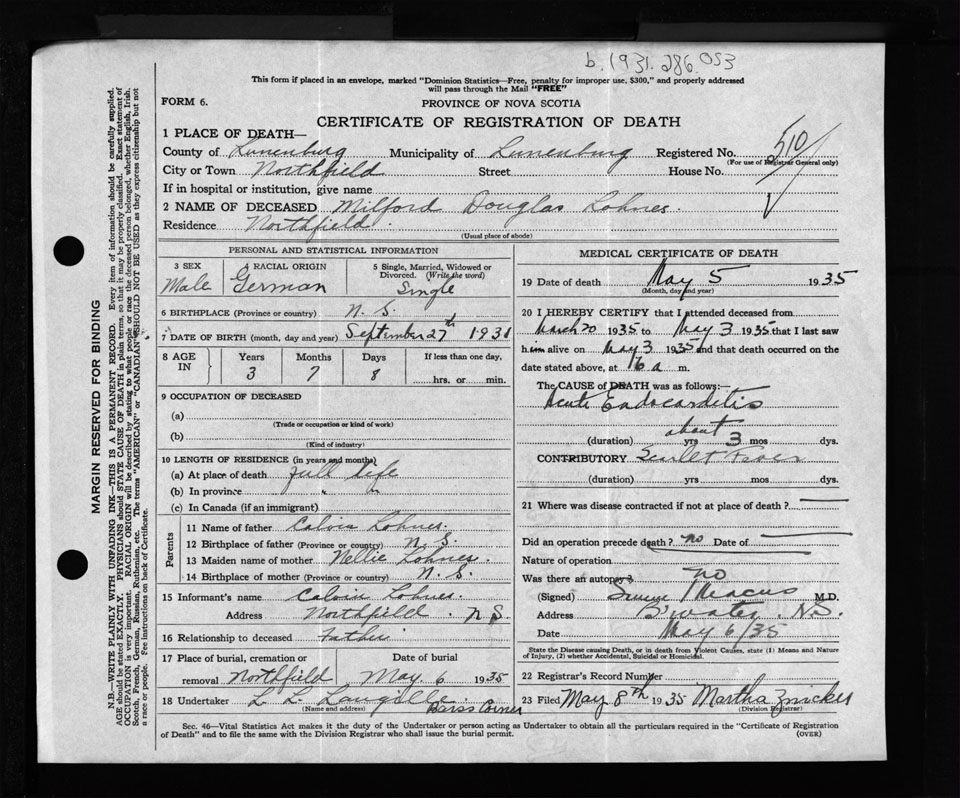 b. 1931. 286 053
This form if placed in an envelope, marked "Dominion Statistics—Free, penalty for improper use, $300," and properly addressed
will pass through the Mail "FREE"
FORM 6.
PROVINCE OF NOVA SCOTIA
CERTIFICATE OF REGISTRATION OF DEATH
1 PLACE OF DEATH—
County of Lunenburg Municipality of Lunenburg Registered No. 510
(For use of Registrar General only)
City or Town Northfield Street House No.
If in hospital or institution, give name
2 NAME OF DECEASED Milford Douglas Lohnes.
Residence Northfield.
(Usual place of abode)
PERSONAL AND STATISTICAL INFORMATION
3 SEX 4 RACIAL ORIGIN 5 Single, Married, Widowed or
Divorced. (Write the word)
Male German Single
6 BIRTHPLACE (Province or country) N. S.
7 DATE OF BIRTH (month, day and year) September 27th 1931
8 AGE IN Years Months Days If less than one day,
3 7 8 hrs. or min.
9 OCCUPATION OF DECEASED
(a)
(Trade or occupation or kind of work)
(b)
(Kind of industry)
10 LENGTH OF RESIDENCE (in years and months)
(a) At place of death full life
(b) In province " "
(c) In Canada (if an immigrant)
Parents
11 Name of father Calvin Lohnes.
12 Birthplace of father (Province or country) N. S.
13 Maiden name of mother Nellie Lohnes.
14 Birthplace of mother (Province or country) N. S.
15 Informant's name Calvin Lohnes.
Address Northfield. N S
16 Relationship to deceased Father
17 Place of burial, cremation or Date of burial
removal Northfield May. 6 1935
18 Undertaker L. L. Langille Barss Corner
(Name and address)
MEDICAL CERTIFICATE OF DEATH
19 Date of death May 5 1935
(Month, day and year)
20 I HEREBY CERTIFY that I attended deceased from
March 20 1935 to May 3 1935 that I last saw
him alive on May 3 1935 and that death occurred on the
date stated above, at a m.
The CAUSE of DEATH was as follows:
Acute Endocarditis
about
(duration) yrs 3 mos dys.
CONTRIBUTORY Scarlet Fever
(duration) yrs mos dys.
21 Where was disease contracted if not at place of death?
Did an operation precede death? no Date of
Nature of operation
Was there an autopsy? no
(Signed) Marcus M.D.
Address B'water, N.S.
Date May 6/35
State the Disease causing Death, or in death from Violent Causes, state (1) Means and
Nature of Injury, (2) whether Accidental, Suicidal or Homicidal.
22 Registrar's Record Number
23 Filed May 8th 1935 Martha Zwicker
(Division Registrar)
Sec. 46—Vital Statistics Act makes it the duty of the Undertaker or person acting as Undertaker to obtain all the particulars required in the "Certificate of Registration
of Death" and to file the same with the Division Registrar who shall issue the burial permit. (OVER)
MARGIN RESERVED FOR BINDING
N.B.—WRITE PLAINLY WITH UNFADING INK—THIS IS A PERMANENT RECORD. Every item of information should be carefully supplied.
AGE should be stated EXACTLY. PHYSICIANS should STATE CAUSE OF DEATH in plain terms, so that it may be properly classified. Exact statement of
OCCUPATION is very important. RACIAL ORIGIN will be described by stating to what people or race the deceased person belonged, whether English, Irish,
Scotch, French, German, Russian, Ruthenian, etc. The terms "AMERICAN" or "CANADIAN" SHOULD NOT BE USED as they express citizenship but not
a race or people. See instructions on back of Certificate.